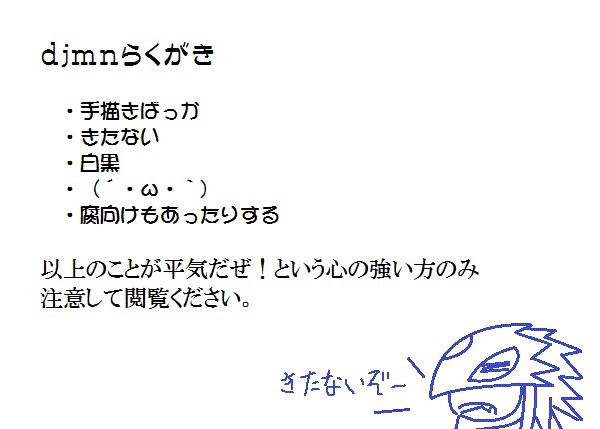 djmnらくがき
・手描きばっか
・きたない
・白黒
・（´・ω・｀）
・腐向けもあったりする
以上のことが平気だぜ！という心の強い方のみ
注意して閲覧ください。
きたないぞー